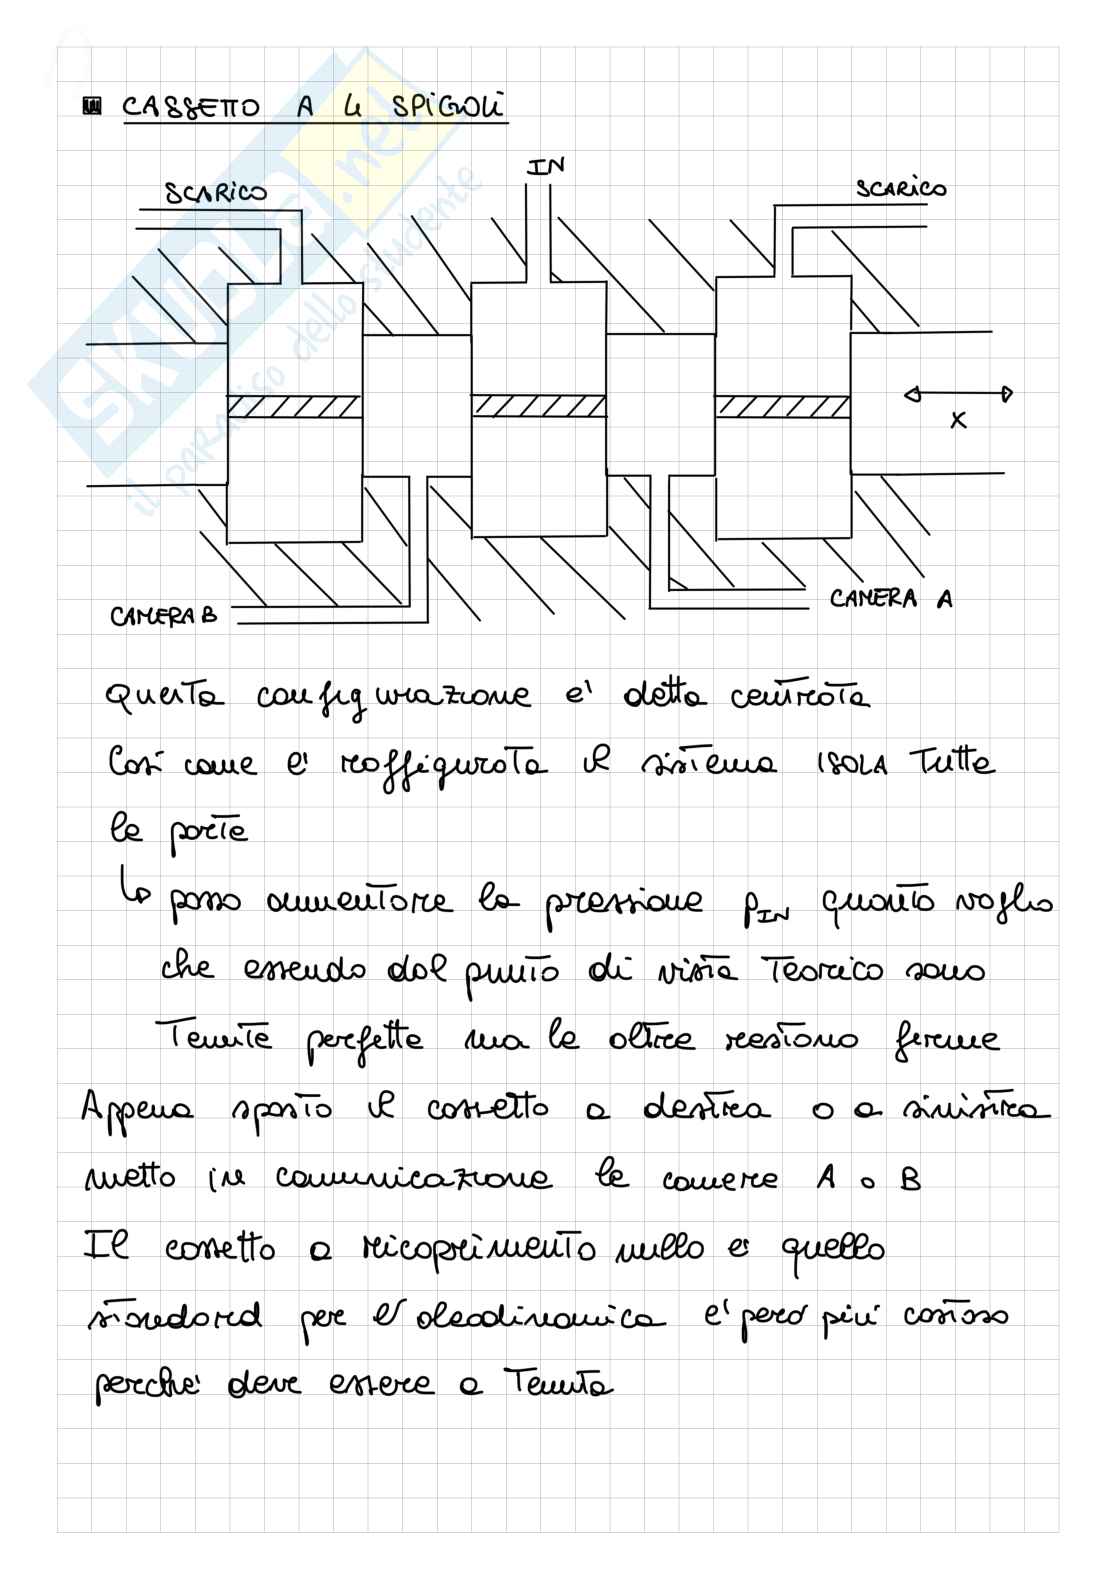 CASSETTO A 4 SPIGOLI
IN
SCARICO
SCARICO
X
CAMERA B
CAMERA A
Questa configurazione e' detta centrata
Così come e' raffigurata il sistema ISOLA tutte
le porte
↳ posso aumentare la pressione pIN quanto voglio
che essendo dal punto di vista teorico sono
tenute perfette ma le altre restano ferme
Appena sposto il cassetto a destra o a sinistra
metto in comunicazione le camere A o B
Il cassetto a ricoprimento nullo e' quello
standard per l'oleodinamica e' però più costoso
perche' deve essere a tenuta
SKUOLA.net
il paradiso dello studente